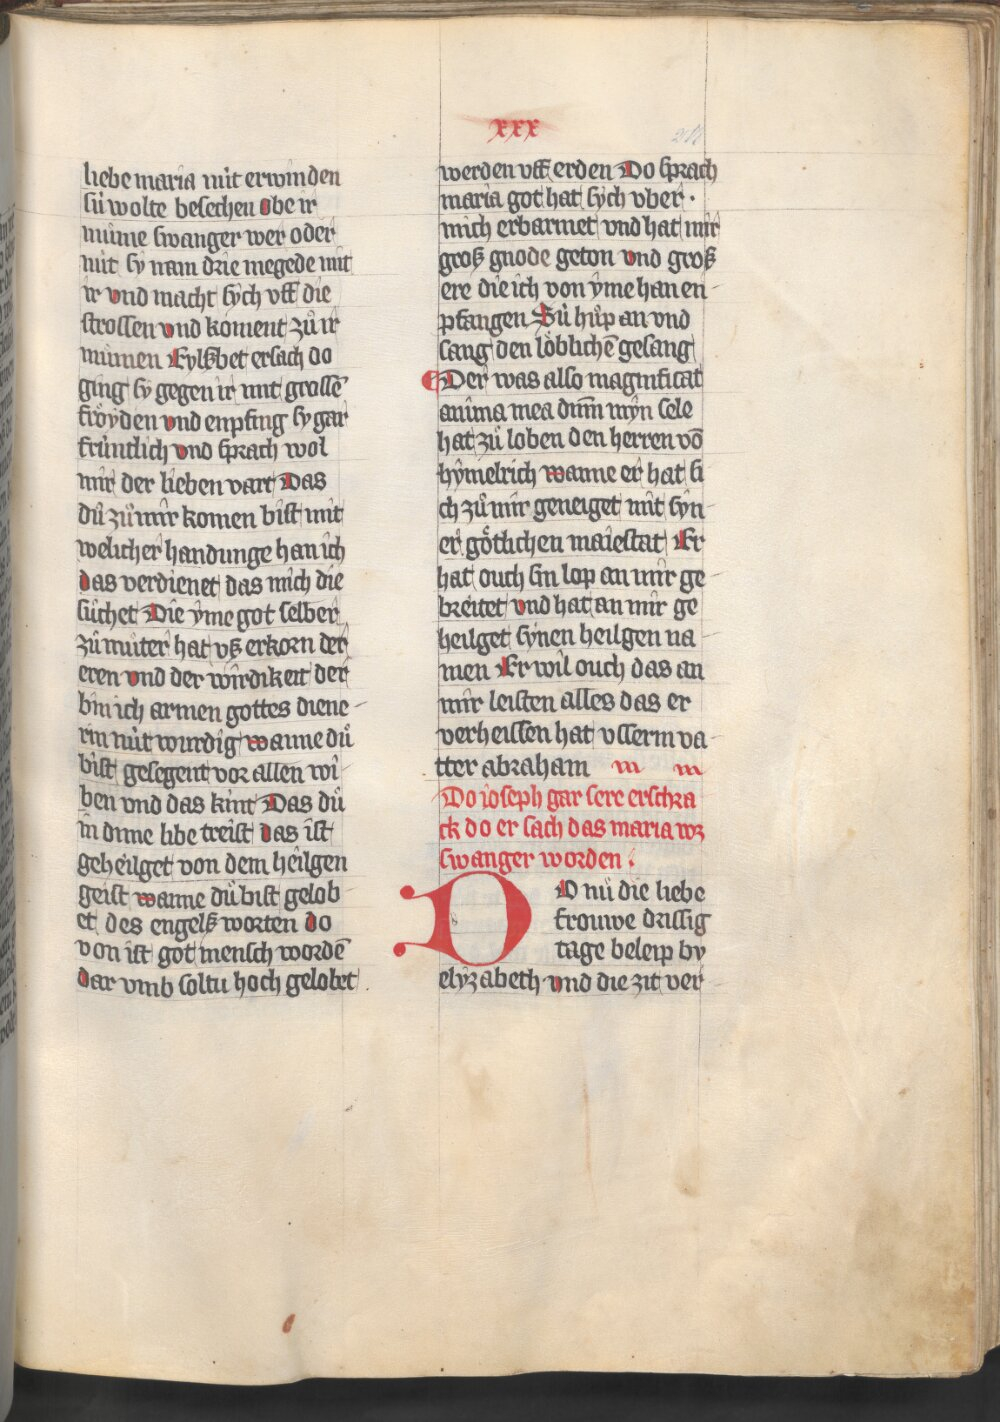 xxx
liebe maria nùt erwinden
sù wolte besechen obe ir
mùme swanger wer oder
nùt sy nam drie megede mit
ir vnd macht sych vff die
strossen vnd koment zů ir
mùmen Eylsbet ersach do
ging sy gegen ir mit grossē
fröyden vnd enpfing sy gar
frùntlich vnd sprach wol
mir der lieben vart Das
dů zů mir komen bist mit
welicher handunge han ich
das verdienet das mich die
sůchet Die yme got selber
zů můter hat vß erkorn der
eren vnd der wirdikeit der
bin ich armen gottes diene
rin nùt wurdig wanne dů
bist gesegent vor allen wi
ben vnd das kint Das dů
in dime libe treist das ist
geheilget von dem heilgen
geist wanne dů bist gelob
et des engels worten do
von ist got mensch wordē
dar vmb soltu hoch gelobet
werden vff erden Do sprach
maria got hat sych vber
mich erbarmet vnd hat mir
groß gnode geton vnd groß
ere die ich von yme han en
pfangen Sù hůp an vnd
sang den löblichē gesang
Der was also magnificat
anima mea dnm myn sele
hat zů loben den herren vō
hymelrich wanne er hat si
ch zů mir geneiget mit syn
er götlichen maiestat Er
hat ouch sin lop an mir ge
breitet vnd hat an mir ge
heilget synen heilgen na
men Er wil ouch das an
mir leisten alles das er
verheissen hat vsserm va
tter abraham
Do ioseph gar sere erschra
ck do er sach das maria wz
swanger worden
DO nů die liebe
frouwe drissig
tage beleip by
elyzabeth vnd die zit ver